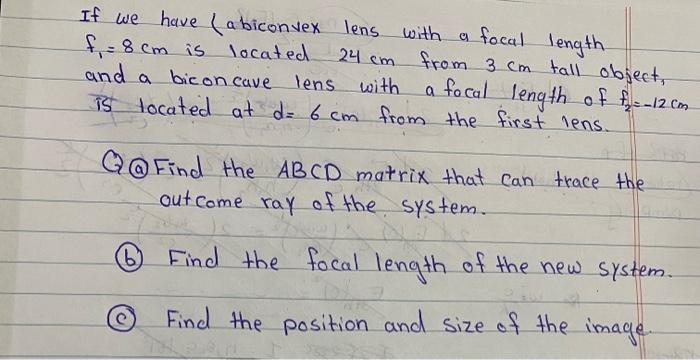 If we have (a biconvex lens with a focal length
f₁ = 8 cm is located 24 cm from 3 cm tall object,
and a biconcave lens with a focal length of f₂=-12 cm
is located at d= 6 cm from the first lens.
Q ⓐ Find the ABCD matrix that can trace the
outcome ray of the system.
ⓑ Find the focal length of the new system.
ⓒ Find the position and size of the image.